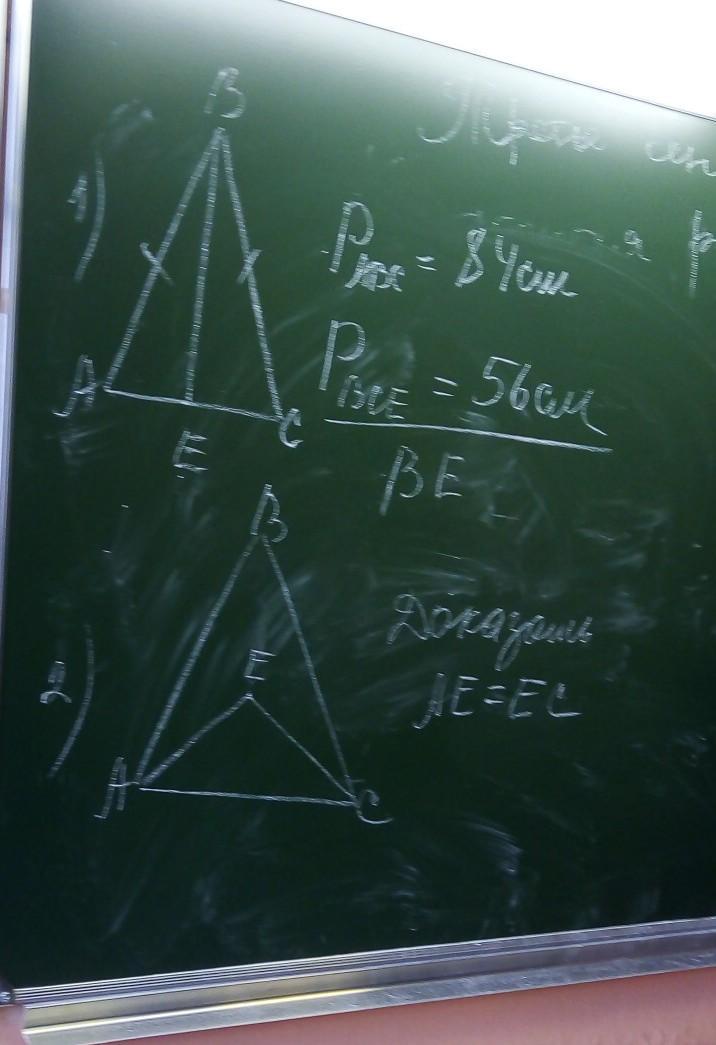 1)
B
A
E
C
P ABC = 84см
P BCE = 56см
BE
2)
B
E
A
C
Доказать
AE=EC